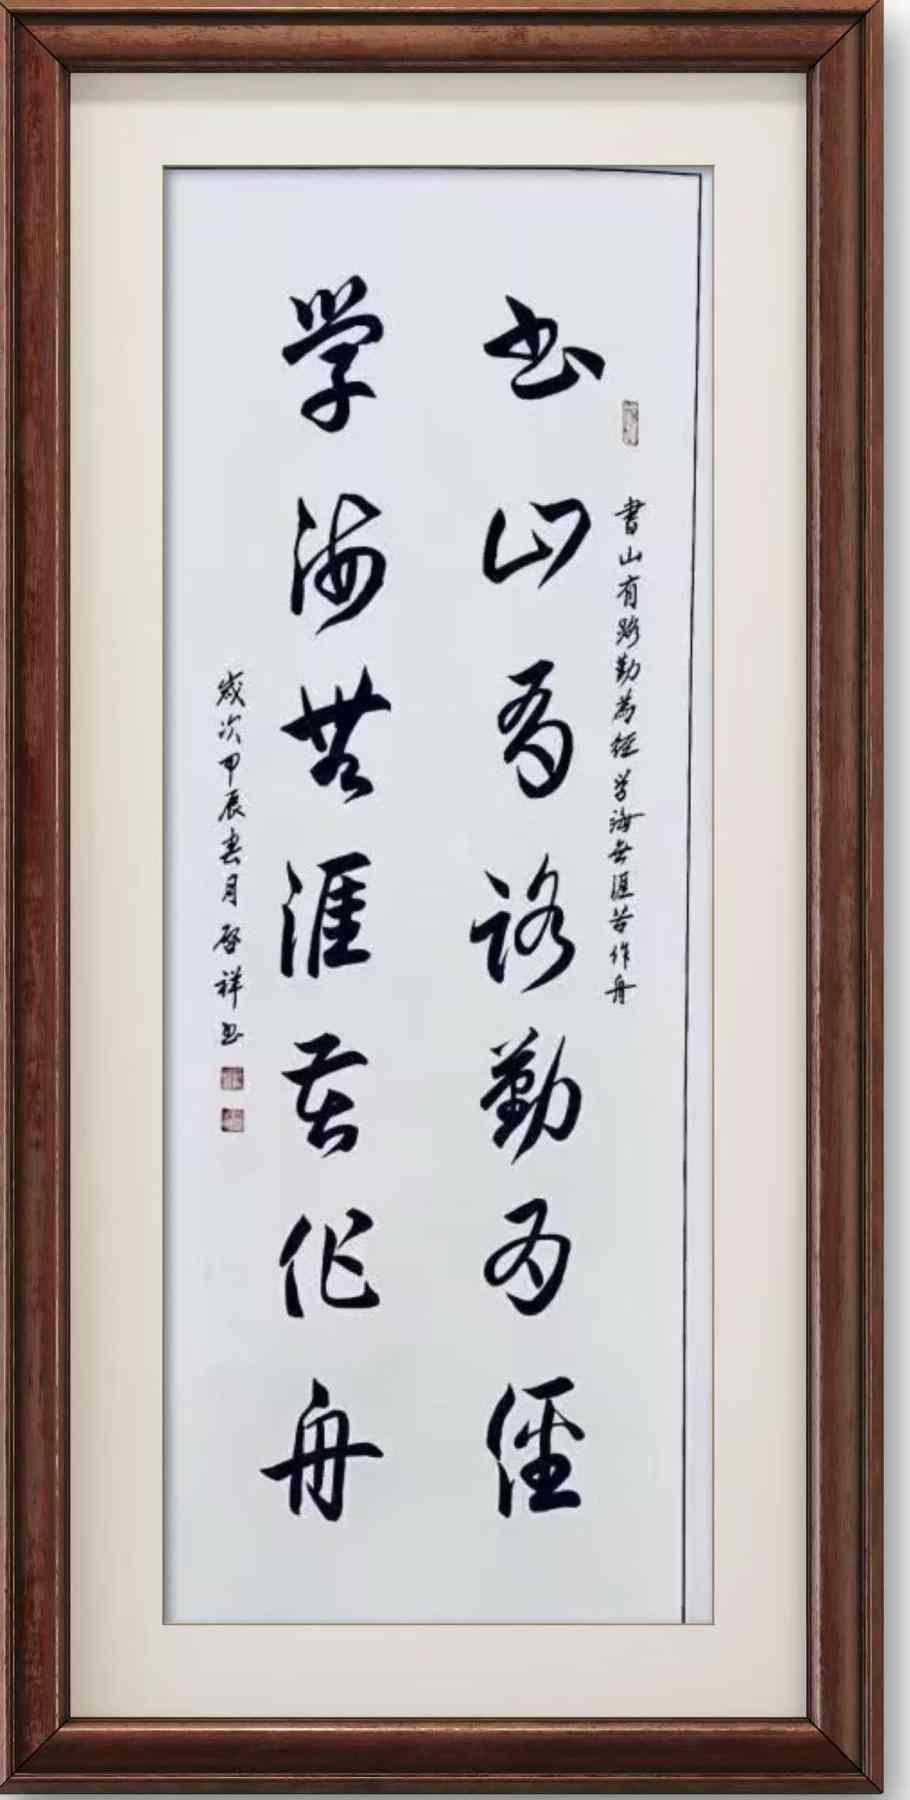 书山有路勤为径
学海无涯苦作舟
書山有路勤为径学海无涯苦作舟
岁次甲辰春月启祥书